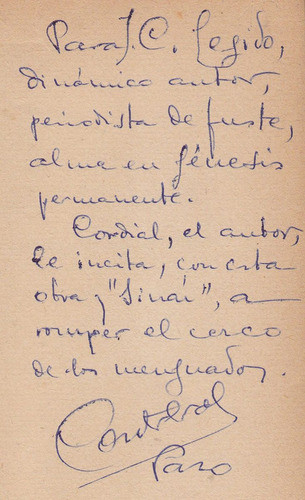 Para J. C. Legido,
dinámico autor,
periodista de fuste,
alma en génesis
permanente.
Cordial, el autor,
le incita, con esta
obra y "Sinaí", a
romper el cerco
de los menguados.
Paro